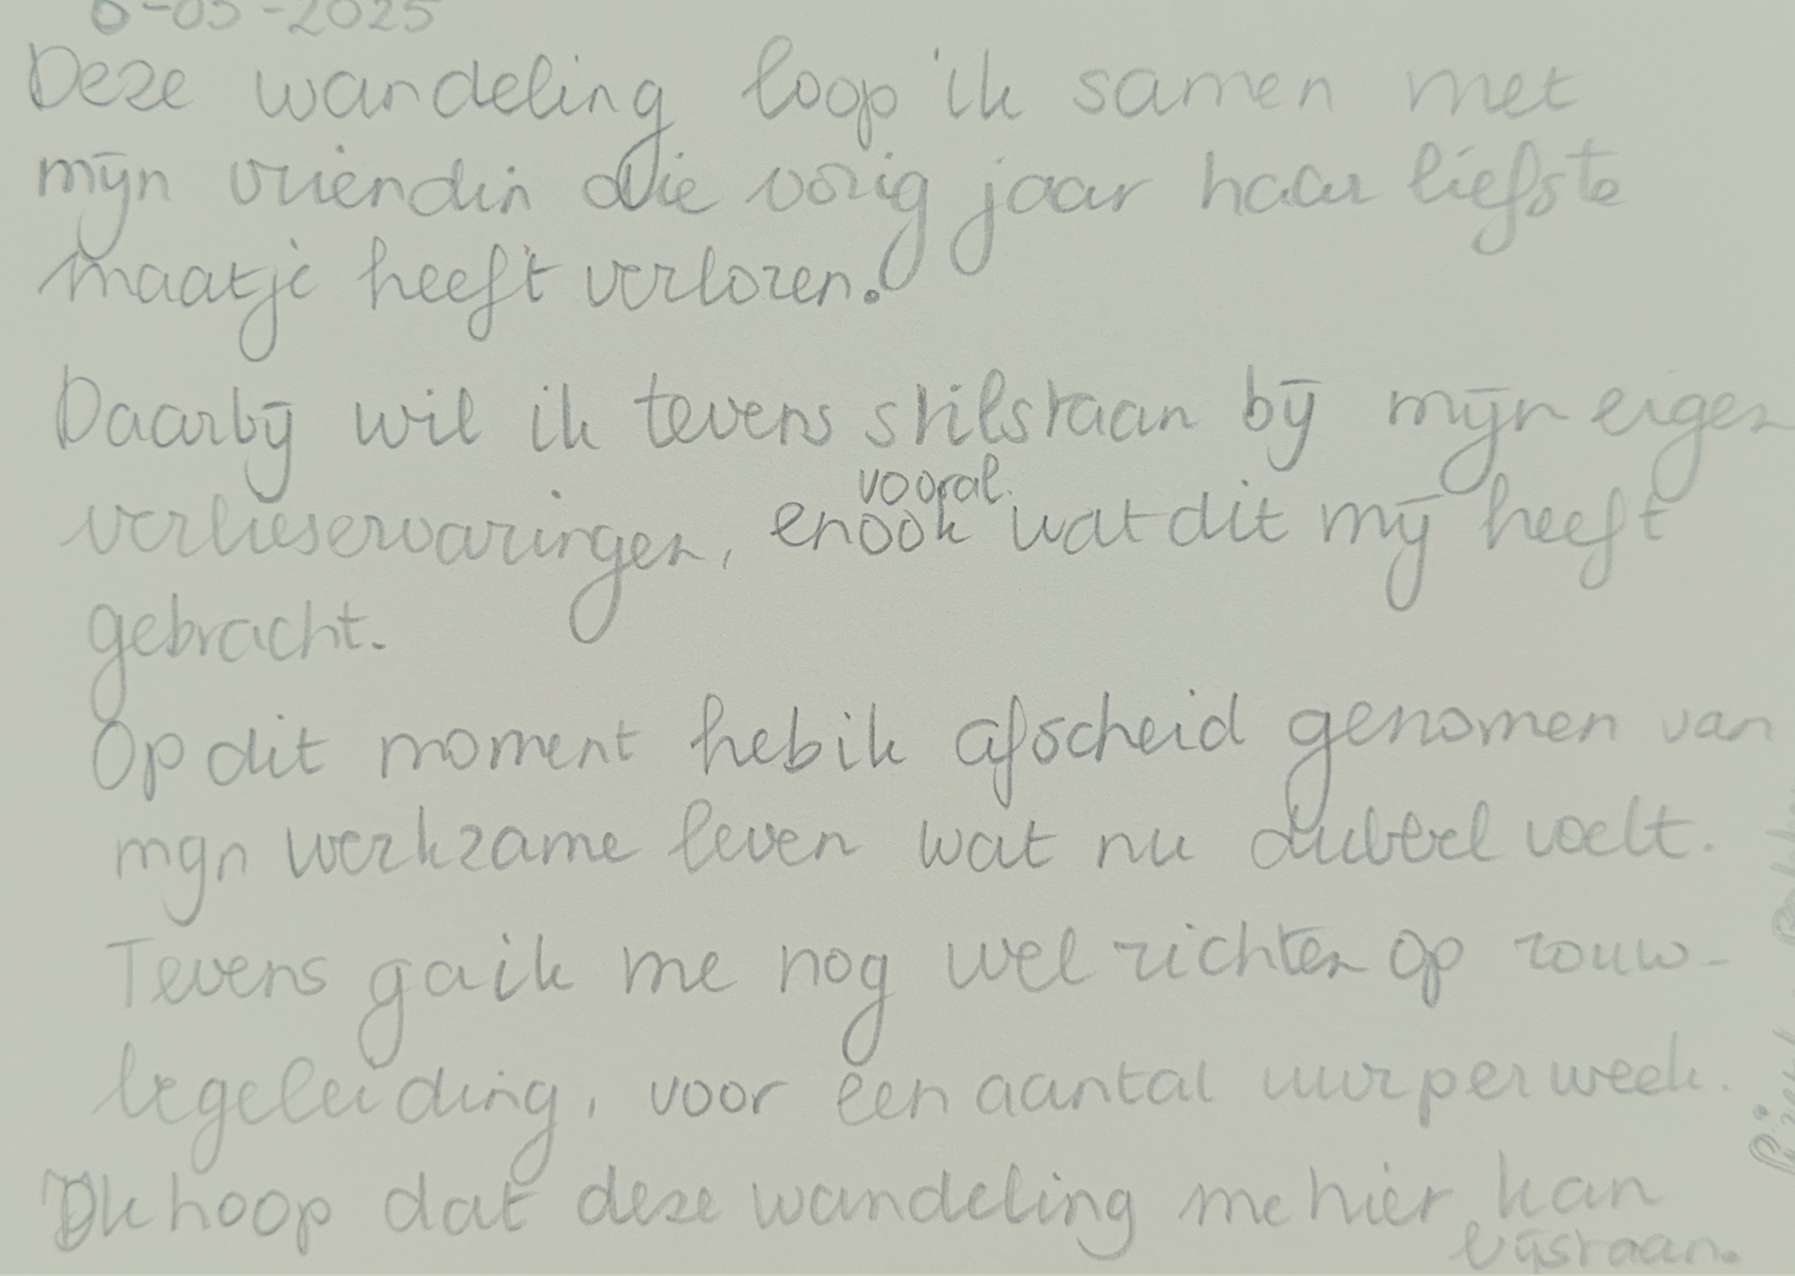 6-05-2025
Deze wandeling loop ik samen met
mijn vriendin die vorig jaar haar liefste
maatje heeft verloren.
Daarbij wil ik tevens stilstaan bij mijn eigen
vooral
verlieservaringen, en ook wat dit mij heeft
gebracht.
Op dit moment heb ik afscheid genomen van
mijn werkzame leven wat nu dubbel voelt.
Tevens ga ik me nog wel richten op rouw-
begeleiding, voor een aantal uur per week.
Ik hoop dat deze wandeling me hier kan
bijstaan.